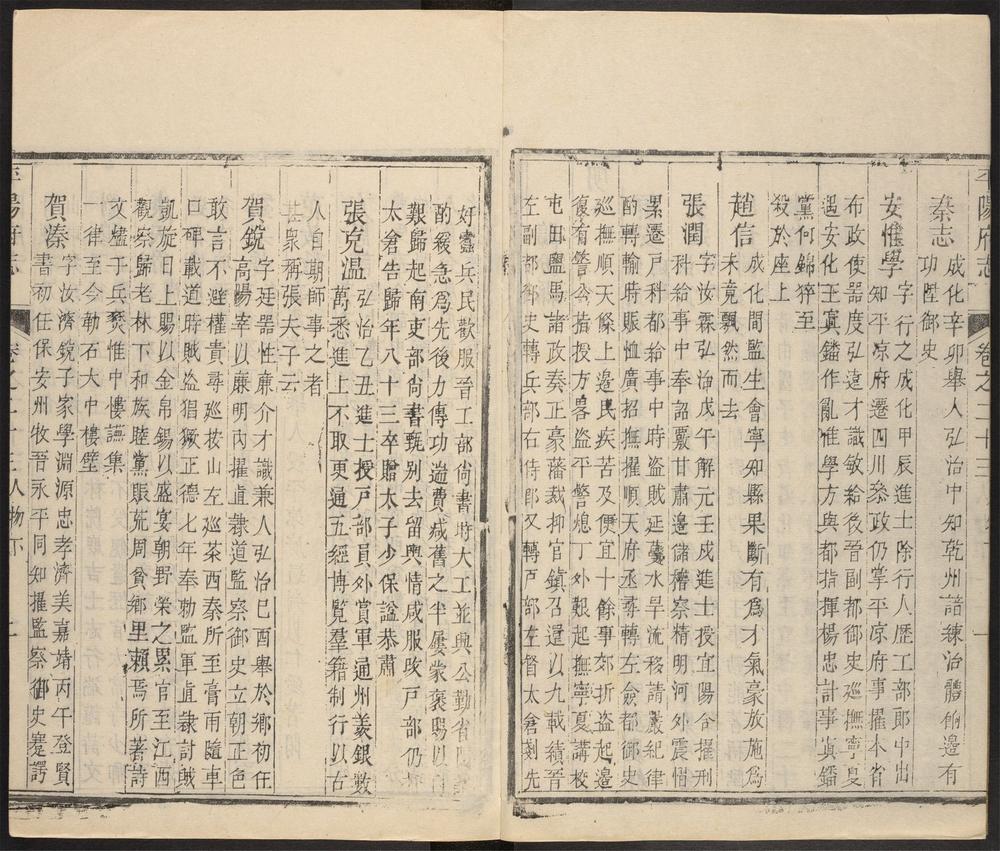 平陽府志
卷之二十三
秦志
成化辛卯舉人弘治中知乾州諳練治體備邊有
功陞御史
安惟學
字行之成化甲辰進士除行人歷工部郎中出
知平凉府遷四川叅政仍掌平凉府事擢本省
布政使器度弘遠才識敏給後晉副都御史巡撫寧夏
遇安化王寘鐇作亂惟學方與都指揮楊忠計事寘鐇
黨何錦猝至
殺於座上
趙信
成化間監生會寧知縣果斷有爲才氣豪放施爲
未竟飄然而去
張潤
字汝霖弘治戊午解元壬戌進士授宜陽令擢刑
科給事中奉詔覈甘肅邊儲稽察精明河外震慴
累遷戶科都給事中時盗賊延蔓水旱流移請嚴紀律
酌轉輸時賑恤廣招撫擢順天府丞尋轉左僉都御史
巡撫順天條上邊民疾苦及便宜十餘事郊折盗起邊
復有警公指授方畧盗平警熄丁外艱起撫寧夏講校
屯田鹽馬諸政奏正豪藩裁抑官鎮召還以九載績晉
左副都御史轉兵部右侍郎又轉戸部左督太倉剗先
好蠹兵民歡服晉工部尚書時大工並興公勤省
酌緩急爲先後力傳功遒費𢧵舊之半屢蒙褒賜以
艱歸起南吏部尚書甄别去留輿情咸服攻戸部仍
太倉告歸年八十三卒贈太子少保謚恭肅
張克温
弘治乙丑進士授戸部員外賞軍通州羡銀數
萬悉進上不取更通五經博覽羣籍制行以古
人自期師事之者
甚衆稱張夫子云
賀鋭
字廷器性廉介才識兼人弘治巳酉舉於鄉初任
高陽宰以廉明内擢直隷道監察御史立朝正色
敢言不避權貴尋廵按山左廵茶西秦所至膏雨隨車
口碑載道時賊盗猖獗正德七年奉勅監軍直隷討賊
凱旋日上賜以金帛錫以盛宴朝野榮之累官至江西
觀察歸老林下和族睦黨賑荒周貧鄉里頼焉所著詩
文燼于兵燹惟中樓讌集
一律至今勒石大中樓壁
賀溱
字汝濟鏡子家學淵源忠孝濟美嘉靖丙午登賢
書初任保安州牧晋永平同知擢監察御史蹇諤
平陽府志
卷之二十三 人物下